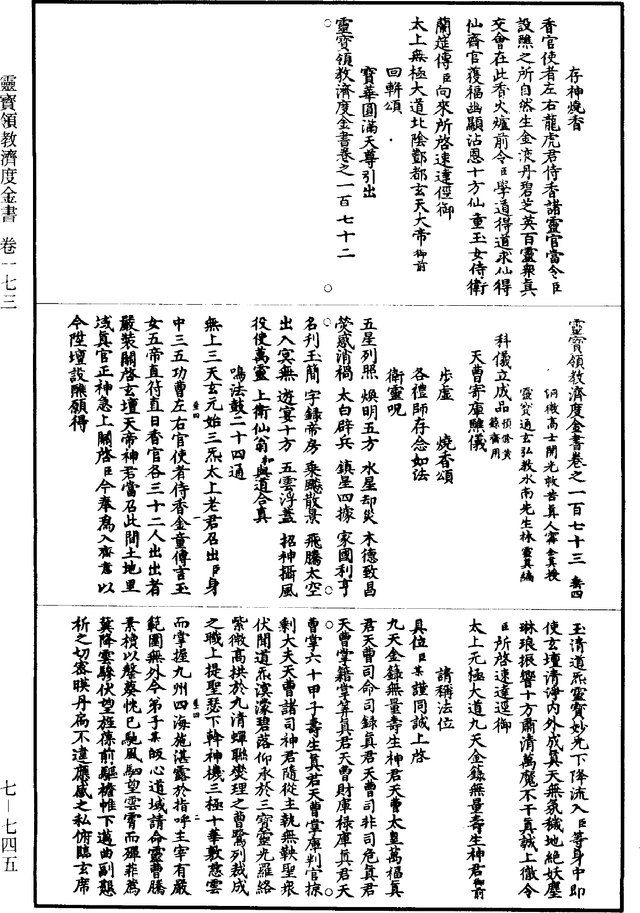 存神燒香
香官使者左右龍虎君侍香諸靈官當令臣
設醮之所自然生金液丹碧芝英百靈衆真
交會在此香火爐前令臣學道得道求仙得
仙齋官獲福幽顯沾恩十方仙童玉女侍衛
蘭筵傳臣向來所啓速達徑御
太上無極大道北陰酆都玄天大帝御前
回軿頌
寶華圓滿天尊引出
靈寶領教濟度金書卷之一百七十二
靈寶領教濟度金書卷之一百七十三 養四
洞微高士開光救苦真人甯全真授
靈寶通玄弘教水南先生林靈真編
科儀立成品 預修黃籙齋用
天曹寄庫醮儀
步虛 燒香頌
各禮師存念如法
衛靈呪
五星列照 煥明五方 水星却災 木德致昌
熒惑消禍 太白辟兵 鎮星四據 家國利亨
名刊玉簡 字錄帝房 乘飈散景 飛騰太空
出入冥無 遊宴十方 五雲浮蓋 招神攝風
役使萬靈 上衛仙翁 與道合真
鳴法鼓二十四通
無上三天玄元始三炁太上老君召出臣身
中三五功曹左右官使者侍香金童傳言玉
女五帝直符直日香官各三十二人出出者
嚴裝關啓玄壇天帝神君當召此間土地里
域真官正神急上關啓臣今奉爲入齋意以
今陞壇設醮願得
玉清道炁靈寶妙光下降流入臣等身中即
使玄壇清淨內外成真天無氛穢地絕妖塵
琳琅振響十方肅清萬魔不干真誠上徹令
臣所啓速達逕御
太上无極大道九天金籙無量壽生神君御前
請稱法位
具位臣某謹同誠上啓
九天金籙無量壽生神君天曹太皇萬福真
君天曹司命司錄真君天曹司非司危真君
天曹掌籍掌筭真君天曹財庫祿庫真君天
曹掌六十甲子壽生真君天曹掌庫判官掠
剩大夫天曹諸司神君隨從主執無鞅聖衆
伏聞道炁溟濛碧落仰承於三寶靈光羅絡
紫微高拱於九清蟬聯爕理之曹鷺列裁成
之職上提聖瑟下斡神機三極十華敷慈雲
而掌握九州四海施湛露於指呼主宰有嚴
範圍無外今弟子某皈心道域請命靈曹騰
素櫝以馨葵恍已馳風駟望雲霄而殫菲蔦
冀降雲驂伏望旌葆前驅櫓帷下邁曲副懇
祈之切密暎丹扃不違應感之私俯臨玄席
靈寶領教濟度金書 卷一七三
七－七四五